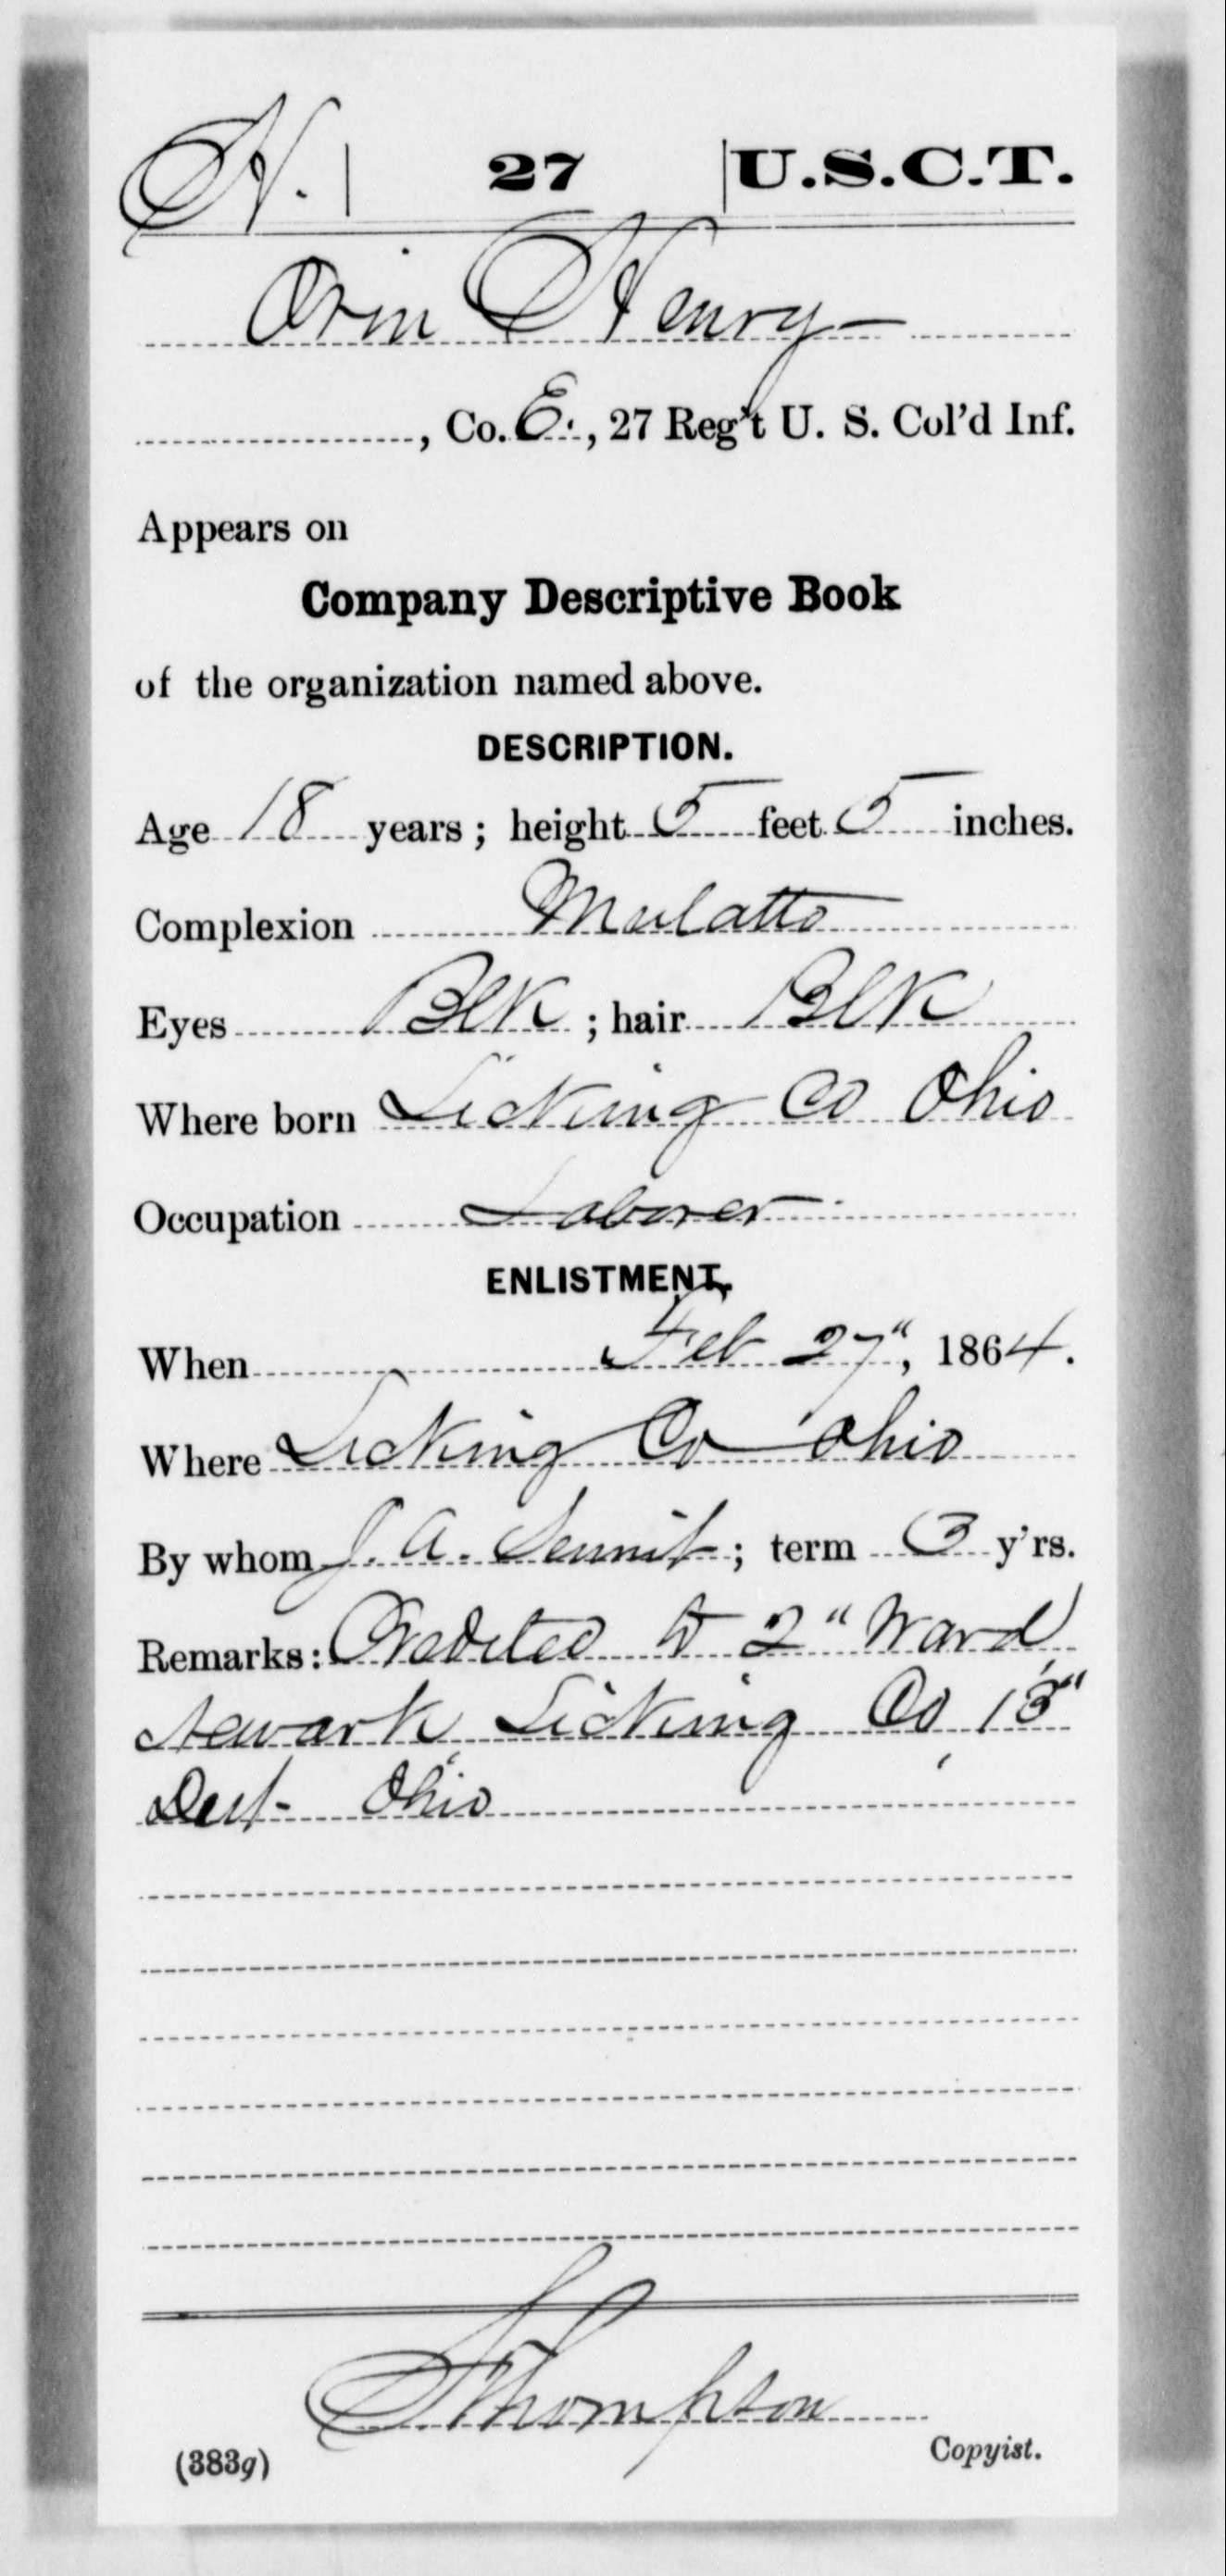 H. | 27 | U.S.C.T.
Orin Henry
, Co. E., 27 Reg't U. S. Col'd Inf.
Appears on
Company Descriptive Book
of the organization named above.
DESCRIPTION.
Age 18 years; height 5 feet 5 inches.
Complexion Mulatto
Eyes Blk ; hair Blk
Where born Licking Co Ohio
Occupation Laborer
ENLISTMENT.
When Feb 27", 1864.
Where Licking Co Ohio
By whom J. A. ; term 3 y'rs.
Remarks: Credited to 2" Ward
Newark Licking Co 13"
Dist- Ohio
Thompson
Copyist.
(383g)